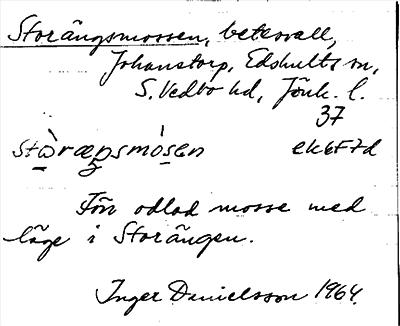 Storängsmossen, betesvall,
Johanstorp, Edshults sn,
S. Vedbo hd, Jönk. l.
37
stòræŋsmósen ek6F7d
Förr odlad mosse med
läge i Storängen.
Inger Danielsson 1964.